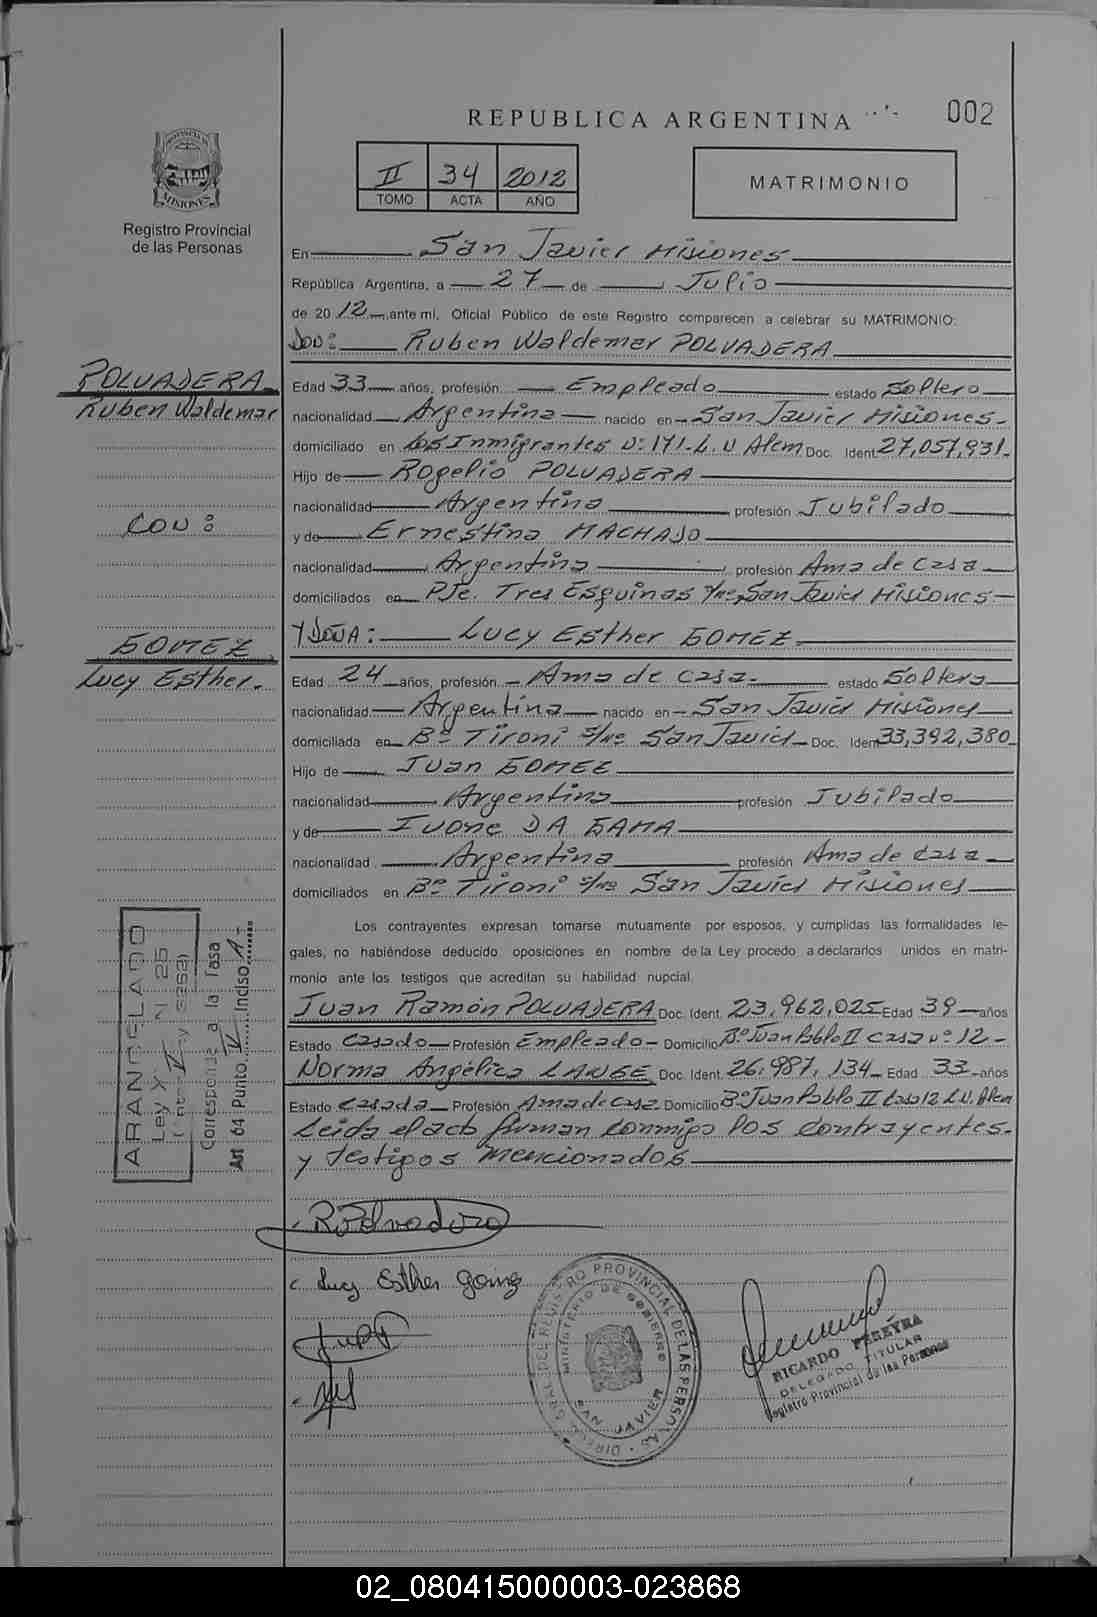 REPUBLICA ARGENTINA
002
PROVINCIA DE
MISIONES
Registro Provincial
de las Personas
II 34 2012
TOMO ACTA AÑO
MATRIMONIO
En San Javier Misiones
República Argentina, a 27 de Julio
de 2012, ante mi, Oficial Público de este Registro comparecen a celebrar su MATRIMONIO:
DON: Ruben Waldemar POLVADERA
POLVADERA
Ruben Waldemar
CON:
GOMEZ
Lucy Esther.
Edad 33 años, profesión Empleado estado Soltero
nacionalidad Argentina nacido en San Javier Misiones
domiciliado en Los Inmigrantes Nº 171-L.N Alem Doc. Ident 27,057,931.
Hijo de Rogelio POLVADERA
nacionalidad Argentina profesión Jubilado
y de Ernestina MACHADO
nacionalidad Argentina, profesión Ama de casa
domiciliados en Pje. Tres Esquinas s/nº San Javier Misiones
Y DOÑA: Lucy Esther GOMEZ
Edad 24 años, profesión Ama de casa. estado Soltera
nacionalidad Argentina nacido en San Javier Misiones
domiciliada en Bº Tironi s/nº San Javier Doc. Iden 33,392,380
Hijo de Juan GOMEZ
nacionalidad Argentina profesión Jubilado
y de Ivone DA GAMA
nacionalidad Argentina profesión Ama de casa
domiciliados en Bº Tironi s/nº San Javier Misiones
Los contrayentes expresan tomarse mutuamente por esposos, y cumplidas las formalidades le-
gales, no habiéndose deducido oposiciones en nombre de la Ley procedo a declararlos unidos en matri-
monio ante los testigos que acreditan su habilidad nupcial.
Juan Ramón POLVADERA Doc. Ident. 23,962,025 Edad 39 años
Estado Casado Profesión Empleado Domicilio Bº Juan Pablo II Casa nº 12
Norma Angélica LANGE Doc. Ident. 26.987,134 Edad 33 años
Estado Casada Profesión Ama de casa Domicilio Bº Juan Pablo II Casa 12 L.N. Alem
Leida el acto firman conmigo los contrayentes
y testigos mencionados
ARANCELADO
Ley X N 25
Corresponde a la Tasa
Art 64 Punto II Inciso A
R Polvadera
Lucy Esther Gomez
DIREC. GRAL. DEL REGISTRO PROVINCIAL DE LAS PERSONAS
MINISTERIO DE GOBIERNO
SAN JAVIER
RICARDO PEREYRA
DELEGADO TITULAR
Registro Provincial de las Personas
02_080415000003-023868